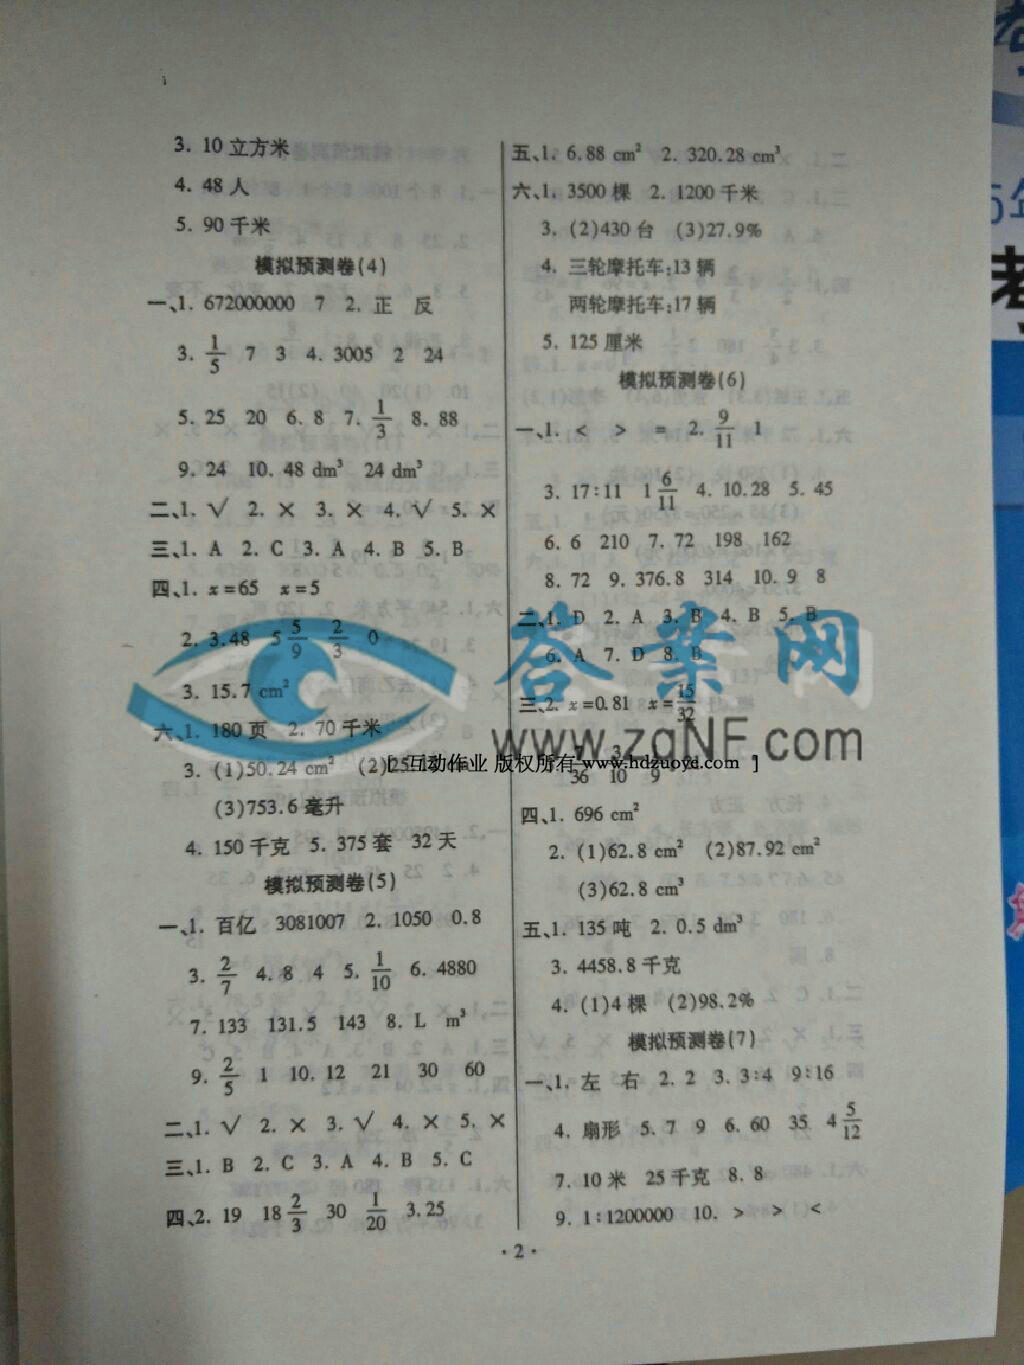 3. 10 立方米
4. 48 人
5. 90 千米
模拟预测卷(4)
一、1. 672000000 7 2. 正 反
3. 1/5 7 3 4. 3005 2 24
5. 25 20 6. 8 7. 1/3 8. 88
9. 24 10. 48 dm³ 24 dm³
二、1. √ 2. × 3. × 4. √ 5. ×
三、1. A 2. C 3. A 4. B 5. B
四、1. x=65 x=5
2. 3.48 5 5/9 2/3 0
3. 15.7 cm²
六、1. 180 页 2. 70 千米
3. (1)50.24 cm² (2)251.2 cm²
(3)753.6 毫升
4. 150 千克 5. 375 套 32 天
模拟预测卷(5)
一、1. 百亿 3081007 2. 1050 0.8
3. 2/7 4. 8 4 5. 1/10 6. 4880
7. 133 131.5 143 8. L m³
9. 2/5 1 10. 12 21 30 60
二、1. √ 2. × 3. √ 4. × 5. ×
三、1. B 2. C 3. A 4. B 5. C
四、2. 19 18 2/3 30 1/20 3.25
五、1. 6.88 cm² 2. 320.28 cm³
六、1. 3500 棵 2. 1200 千米
3. (2)430 台 (3)27.9%
4. 三轮摩托车:13 辆
两轮摩托车:17 辆
5. 125 厘米
模拟预测卷(6)
一、1. < > = 2. 9/11 1
3. 17∶11 1 6/11 4. 10.28 5. 45
6. 6 210 7. 72 198 162
8. 72 9. 376.8 314 10. 9 8
二、1. D 2. A 3. B 4. B 5. B
6. A 7. D 8. B
三、2. x=0.81 x=15/32
36 10 9
四、1. 696 cm²
2. (1)62.8 cm² (2)87.92 cm²
(3)62.8 cm³
五、1. 135 吨 2. 0.5 dm³
3. 4458.8 千克
4. (1)4 棵 (2)98.2%
模拟预测卷(7)
一、1. 左 右 2. 2 3. 3∶4 9∶16
4. 扇形 5. 7 9 6. 60 35 4 5/12
7. 10 米 25 千克 8. 8
9. 1∶1200000 10. > > <
· 2 ·
答案网
www.zqNF.com
[ 互动作业 版权所有 www.hdzuoye.com ]